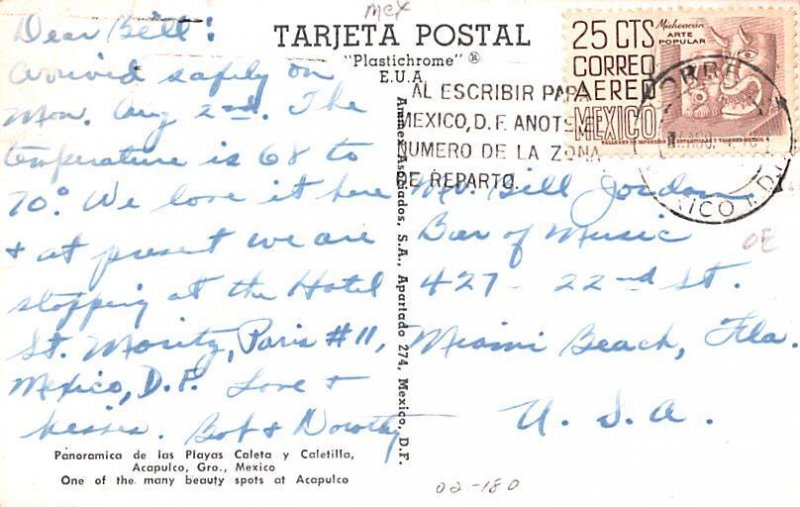 mex
TARJETA POSTAL
"Plastichrome" ®
E.U.A.
25 CTS
CORREO
AEREO
MEXICO
Michoacán
ARTE
POPULAR
AL ESCRIBIR PARA
MEXICO, D.F. ANOTE
NUMERO DE LA ZONA
DE REPARTO.
Dear Bill:
Arrived safely on
Mon. Aug 2nd. The
temperature is 68 to
70°. We love it here
+ at present we are
stopping at the Hotel
St. Moritz, Paris #11,
Mexico, D.F. Love +
kisses. Bob & Dorothy
Ammex Asociados, S.A., Apartado 274, Mexico, D.F.
Mr. Bill Jordan
Bar of Music
427 - 22nd St.
Miami Beach, Fla.
U.S.A.
OE
Panoramica de las Playas Caleta y Caletilla,
Acapulco, Gro., Mexico
One of the many beauty spots at Acapulco
02-180